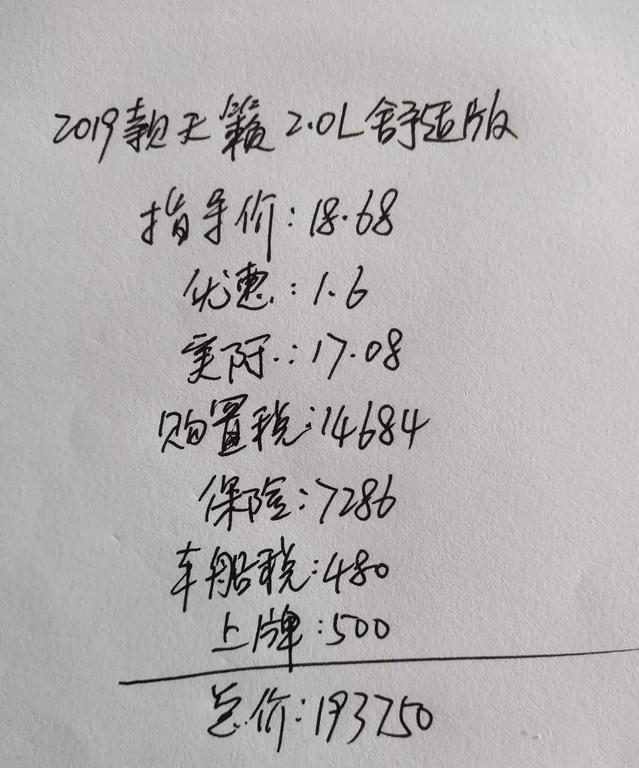 2019款天籁2.0L舒适版
指导价:18.68
优惠:1.6
实际:17.08
购置税:14684
保险:7286
车船税:480
上牌:500
总价:193750